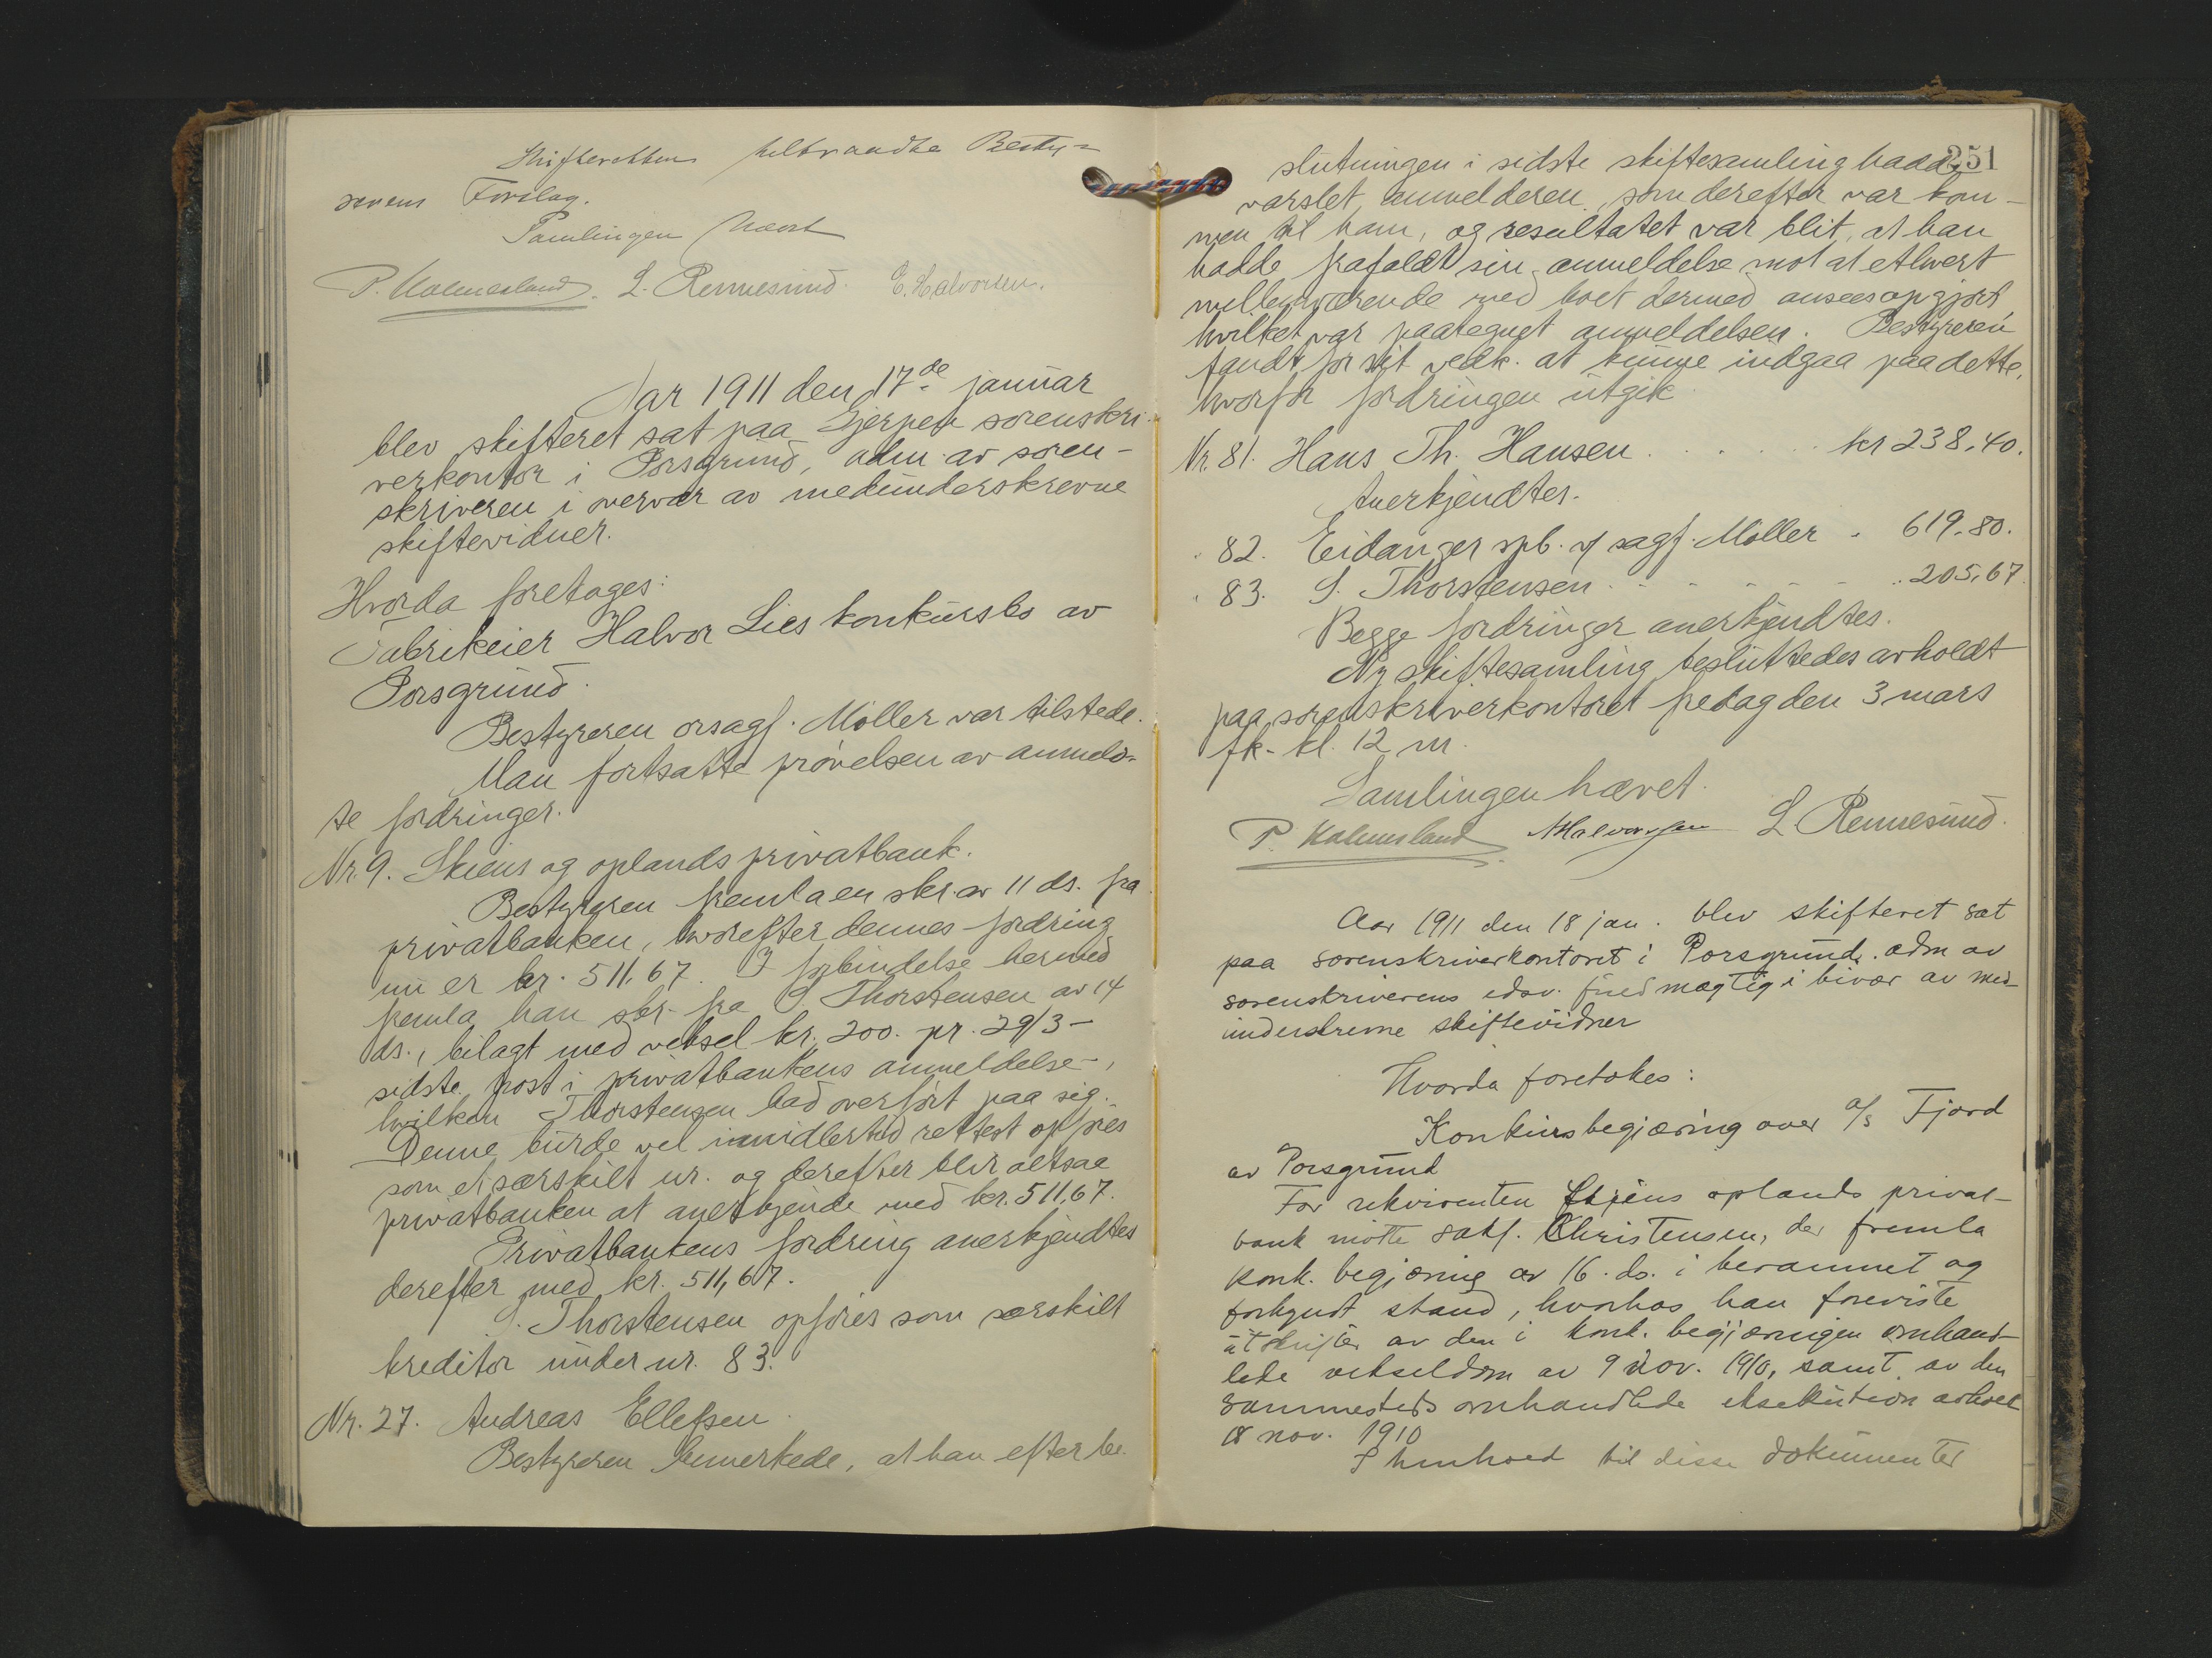 Skifteretten tiltraadte Besty-
rerens Forslag.
Samlingen hævet
P. Kolmesland. L. Rennesund. E. Halvorsen.
Aar 1911 den 17de januar
blev skifteret sat paa Gjerpen sorenskri-
verkontor i Porsgrund, adm. av soren-
skriveren i overvær av medunderskrevne
skiftevidner.
Hvorda foretoges:
Fabrikeier Halvor Lies konkursbo av
Porsgrund.
Bestyreren orsagf. Møller var tilstede.
Man fortsatte prøvelsen av anmeld-
te fordringer.
Nr. 9. Skiens og oplands privatbank.
Bestyreren fremla en skr. av 11 ds. fra
privatbanken, hvorefter dennes fordring
nu er kr. 511,67. I forbindelse hermed
fremla han skr. fra S. Thorstensen av 14
ds., bilagt med veksel kr. 200. pr. 29/3 -
sidste post i privatbankens anmeldelse -,
hvilken Thorstensen bad overført paa sig.
Denne burde vel imidlertid rettest opføres
som et særskilt nr. og derefter blir altsaa
privatbanken at anerkjende med kr. 511,67.
Privatbankens fordring anerkjendtes
derefter med kr. 511,67.
S. Thorstensen opføres som særskilt
kreditor under nr. 83.
Nr. 27. Andreas Ellefsen.
Bestyreren bemerkede, at han efter be-
251
slutningen i sidste skiftesamling hadde
varslet anmelderen, som derefter var kom-
men til ham, og resultatet var blit, at han
hadde frafaldt sin anmeldelse mot at ethvert
mellemværende med boet dermed ansees opgjort
hvilket var paategnet anmeldelsen. Bestyreren
fandt for sit vedk. at kunne indgaa paa dette,
hvorfor fordringen utgik.
Nr. 81. Hans Th. Hansen . . . . . . kr 238,40.
Anerkjendtes.
" 82. Eidanger spb. v/ sagf. Møller " 619,80.
" 83. S. Thorstensen . . . . . . " 205,67.
Begge fordringer anerkjendtes.
Ny skiftesamling besluttedes avholdt
paa sorenskriverkontoret fredag den 3 mars
fk. kl. 12 m.
Samlingen hævet.
P. Kolmesland NHalvorsen L. Rennesund.
Aar 1911 den 18 jan. blev skifteret sat
paa sorenskriverkontoret i Porsgrund, adm av
sorenskriverens edsv. fuldmægtig i bivær av med-
underskrevne skiftevidner
Hvorda foretokes:
Konkursbegjæring over a/s Fjord
av Porsgrund
For rekvirenten Skiens oplands privat-
bank møtte sakf. Christensen, der fremla
konk. begjæring av 16. ds. i berammet og
forkyndt stand, hvorhos han foreviste
utskrifter av den i konk. begjæringen omhand-
lede vekseldom av 9 nov. 1910, samt av den
sammesteds omhandlede eksekution avholdt
18 nov. 1910
I henhold til disse dokumenter